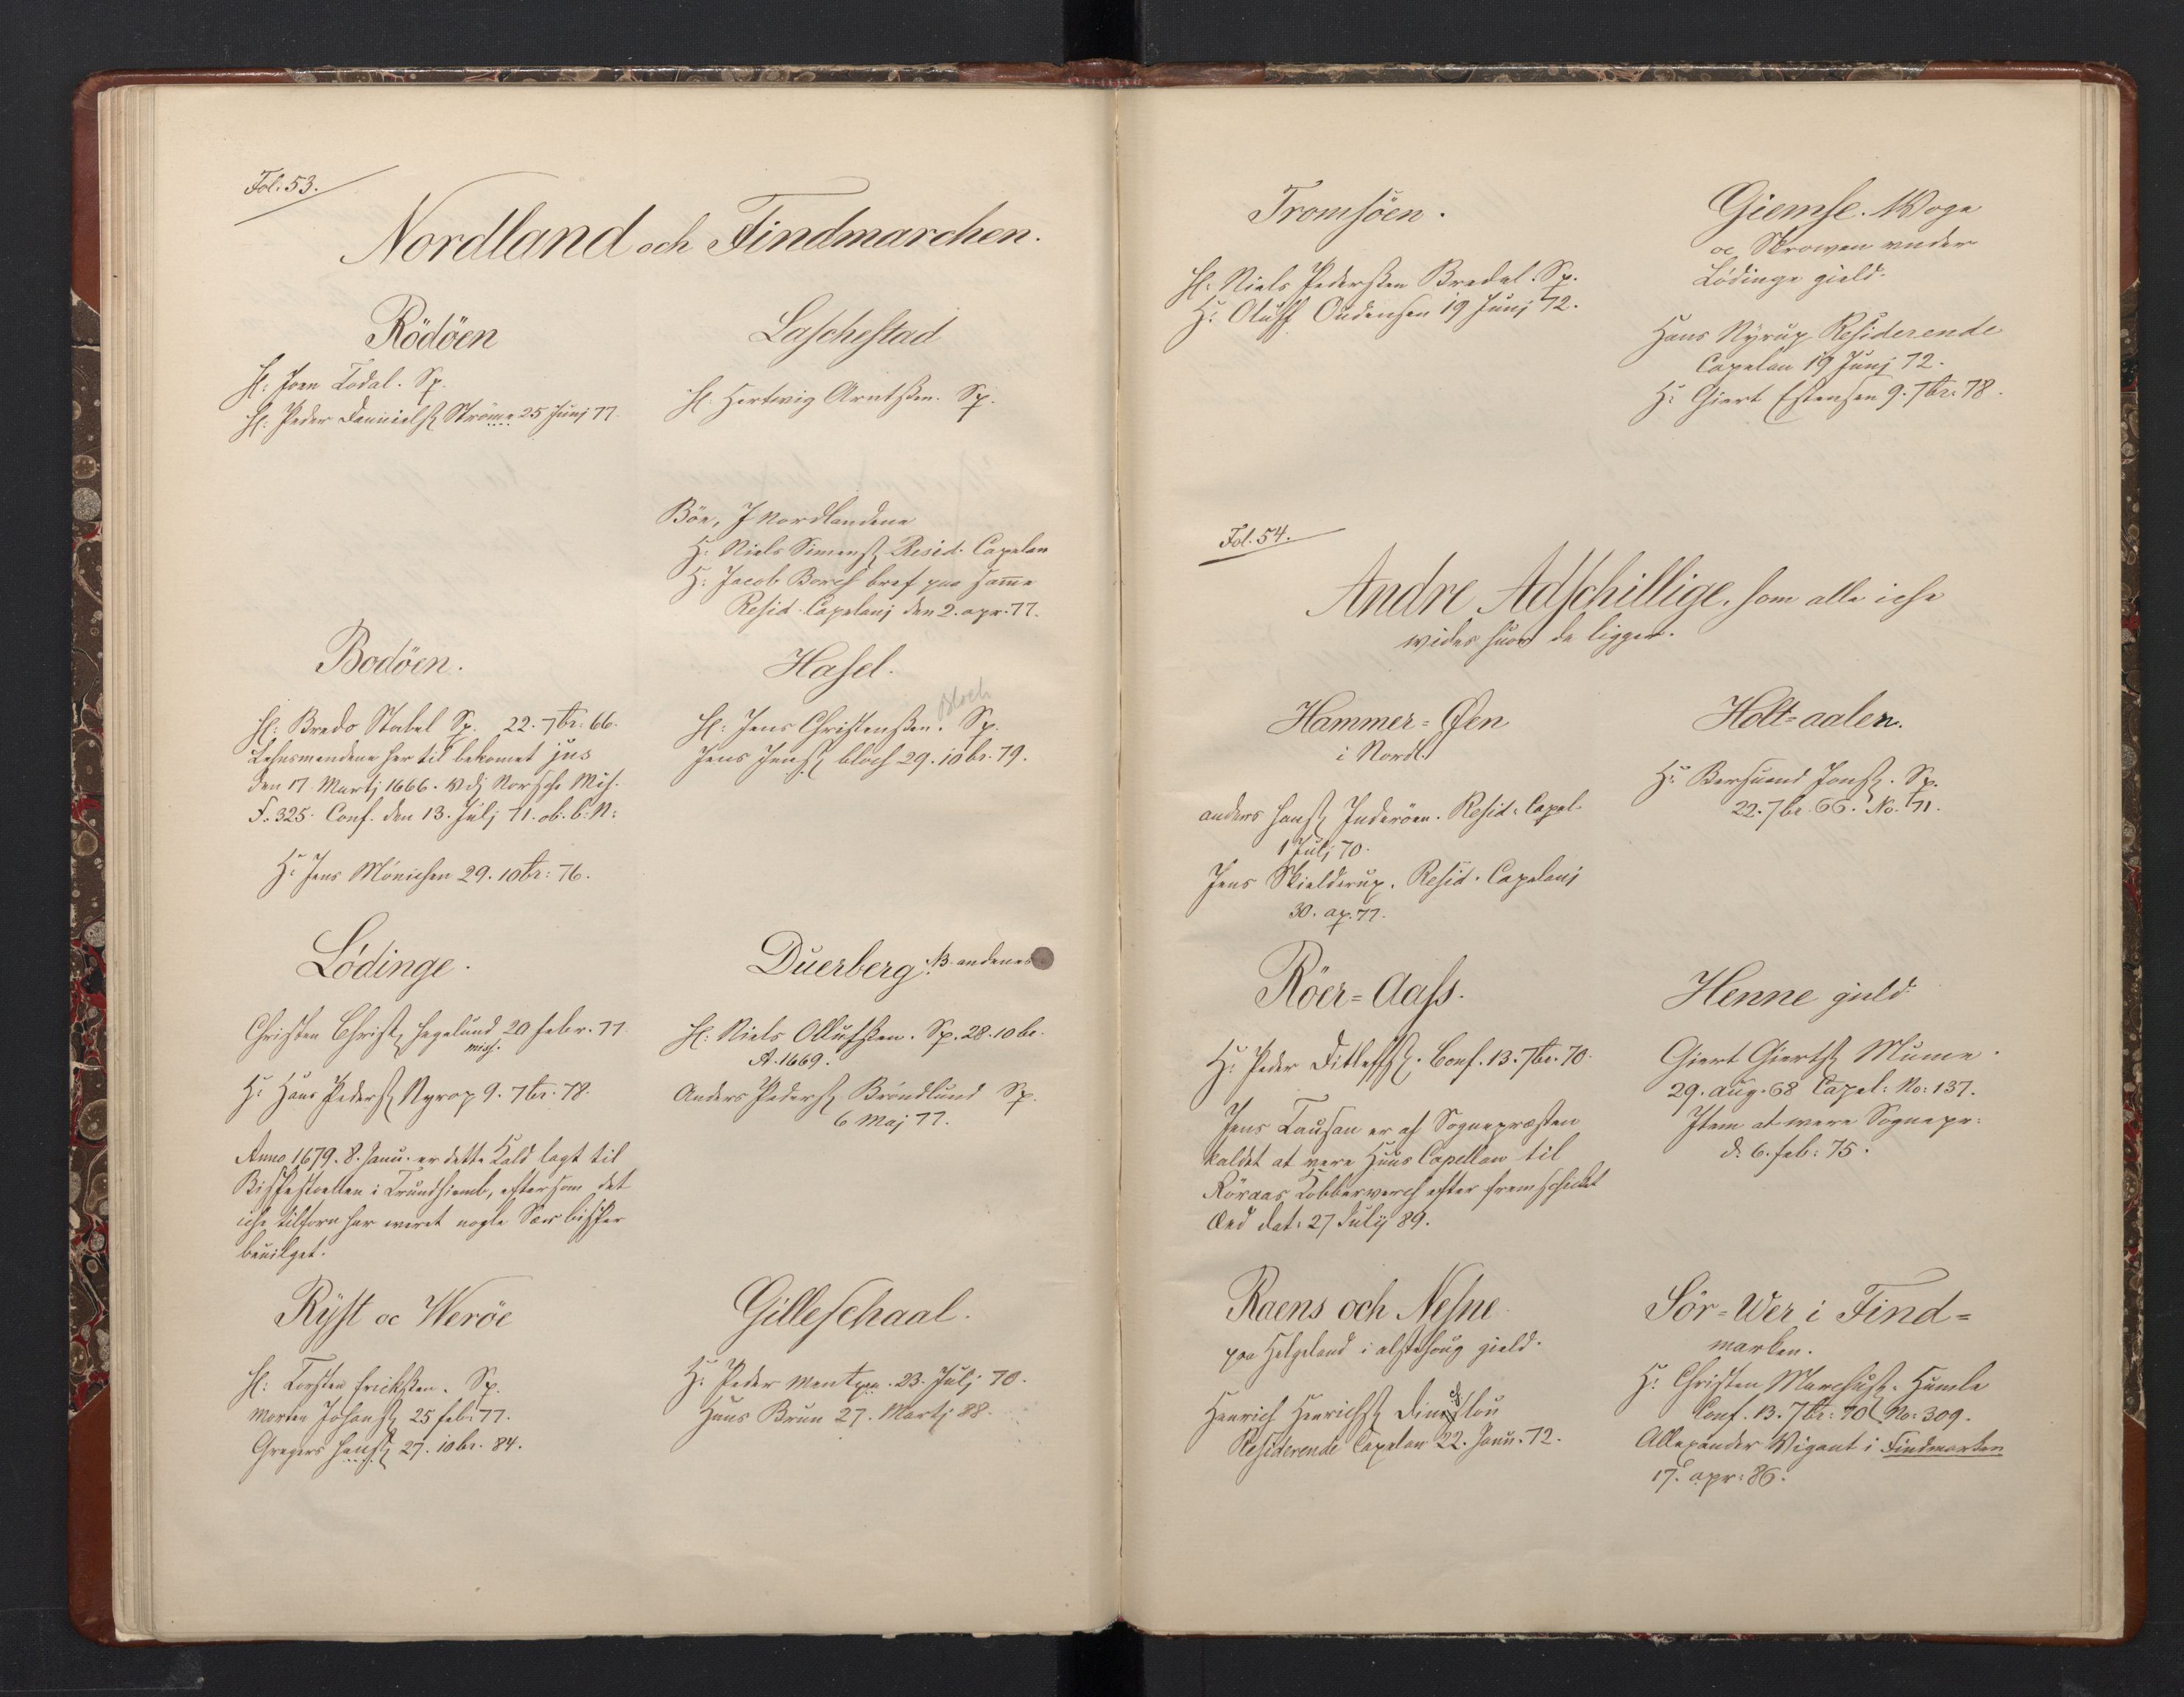 Fol. 53.
Nordland och Findmarchen.
Rödöen
H: Joen Todal. Sp.
H: Peder Danniels. Ström 25 Junj 77.
Laschestad
H. Hertwig Arntsen. Sp.
Böe, J Nordlandene
H: Niels Simens. Resid. Capelan
H: Jacob Borch bref paa samme
Resid. Capelanj den 2. apr. 77.
Bodöen.
H: Bredo Stabel Sp. 22. 7br: 66.
Lehnsmendene her til bekomet jus
den 17 Martj 1666. Norsche Miss.
F. 325. Conf. den 13. Julj 71. ob. b. N:
Hr Jens Mönichen 29. 10br: 76.
Hasel.
Bloch
H: Jens Christensen. Sp.
Jens Jens. bloch 29. 10br. 79.
Lödinge.
Christen Christ. Hegelund 20 febr. 77.
miss.
Hr Hans Peders. Nyrop 9. 7br. 78.
Anno 1679. 8. Janu. er dette Kald lagt til
Bispestoelen i Trundhiemb, eftersom det
iche tilforn har weret nogle Sær bisper
beuilget.
Duerberg. NB. andenes
H: Niels Ollufsen. Sp. 28. 10br.
A. 1669.
Anders Peders. Bröndlund Sp.
6 Maj 77.
Ryst oc Weröe
H: Torsten Ericksen. Sp.
Morten Johans. 25 feb: 77.
Gregers Hans. 27. 10br. 84.
Gilleschaal.
Hr. Peder Mentzen. 23. Julj 70.
Hans Brun 27. Martj 88.
Tromsöen.
H: Niels Pedersen Bredal. Sp.
Hr Oluff Oudensen 19 Junj 72.
Giemse. Woge
oc Skrowen under
Lödinge gield.
Hans Nyrup Residerende
Capelan 19 Junj 72.
Hr Giert Estensen 9. 7br: 78.
Fol. 54.
Andre Adschillige, som alle iche
wides huor de ligger.
Hammer=Øen
i Nordl.
anders Hans. Inderöen. Resid: Capel.
1 Julj 70.
Jens Skielderup. Resid. Capelanj
30. ap. 77.
Holt=aalen.
Hr Bersuend Jons. Sp.
22. 7br. 66. No. 71.
Röer=Aass.
Hr Peder Ditleffs. Conf. 13. 7br. 70.
Jens Tausan er af Sognepræsten
kaldet at were Huus Capellan til
Röraas Kobberwerch efter fremschicket
Ord dat: 27 July 89.
Henne gield
Giert Gierts. Mume.
29. Aug. 68 Capel: No: 137.
Item at were Sognepr:
d. 6. feb: 75.
Raens och Nesne
paa Helgeland i alstahoug gield.
Henrich Henrichs. Dineslou
Residerende Capelan 22. Janu. 72.
Sör=Wer i Find=
marken.
Hr Christen Marchus. Humle
Conf. 13. 7br: 70 No: 309.
Allexander Wigant i Findmarken
17. apr: 86.